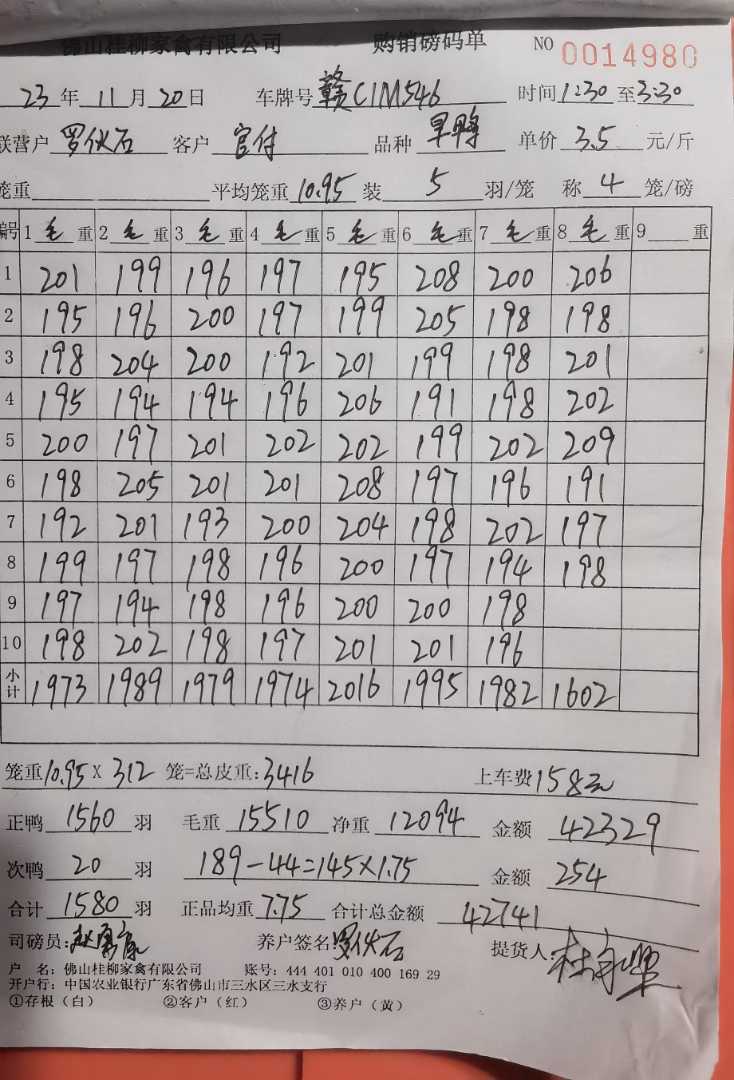 佛山桂柳家禽有限公司 购销磅码单 NO 0014980
23 年 11 月 20 日 车牌号 赣C1M546 时间 1:30 至 3:30
联营户 罗伙石 客户 官付 品种 旱鸭 单价 3.5 元/斤
笼重 平均笼重 10.95 装 5 羽/笼 称 4 笼/磅
编号 1 毛 重 2 毛 重 3 毛 重 4 毛 重 5 毛 重 6 毛 重 7 毛 重 8 毛 重 9 重
1 201 199 196 197 195 208 200 206
2 195 196 200 197 199 205 198 198
3 198 204 200 192 201 199 198 201
4 195 194 194 196 206 191 198 202
5 200 197 201 202 202 199 202 209
6 198 205 201 201 208 197 196 191
7 192 201 193 200 204 198 202 197
8 199 197 198 196 200 197 194 198
9 197 194 198 196 200 200 198
10 198 202 198 197 201 201 196
小计 1973 1989 1979 1974 2016 1995 1982 1602
笼重 10.95 X 312 笼=总皮重: 3416 上车费 158元
正鸭 1560 羽 毛重 15510 净重 12094 金额 42329
次鸭 20 羽 189-44=145×1.75 金额 254
合计 1580 羽 正品均重 7.75 合计总金额 42741
司磅员: 养户签名 罗伙石 提货人:
户 名: 佛山桂柳家禽有限公司 账号: 444 401 010 400 169 29
开户行: 中国农业银行广东省佛山市三水区三水支行
①存根(白) ②客户(红) ③养户(黄)